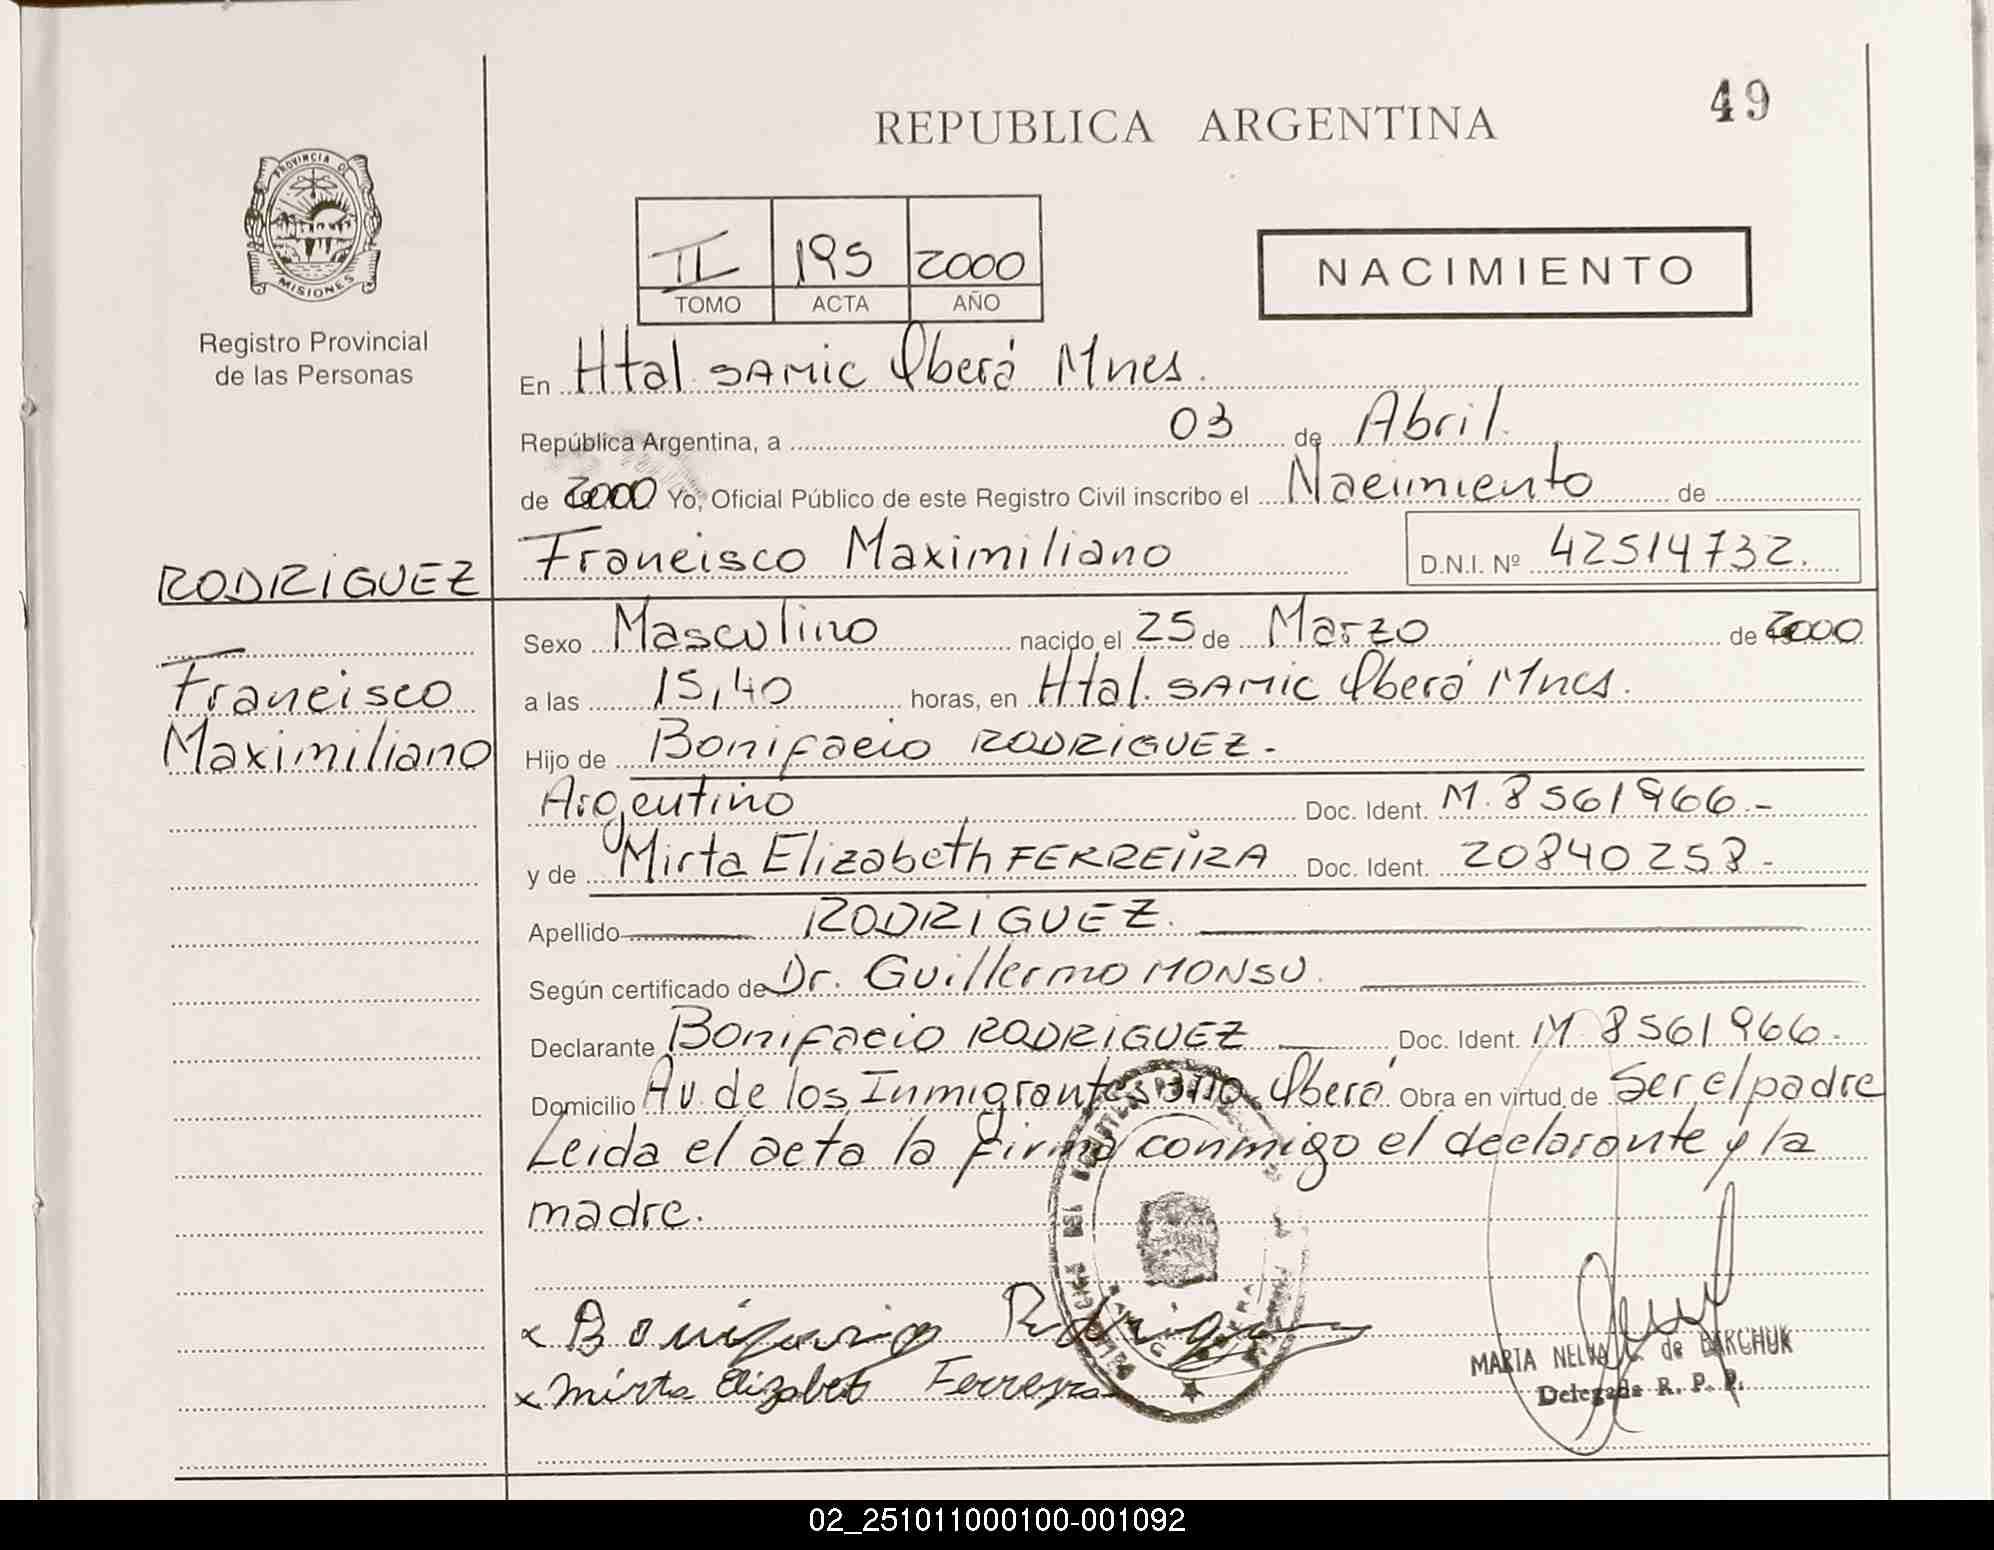 49
REPUBLICA ARGENTINA
PROVINCIA DE
MISIONES
Registro Provincial
de las Personas
II 195 2000
TOMO ACTA AÑO
NACIMIENTO
En Htal SAMIC Oberá Mnes.
República Argentina, a 03 de Abril.
de 2000 Yo, Oficial Público de este Registro Civil inscribo el Nacimiento de
Francisco Maximiliano D.N.I. Nº 42514732.
RODRIGUEZ
Francisco
Maximiliano
Sexo Masculino nacido el 25 de Marzo de 2000
a las 15,40 horas, en Htal. SAMIC Oberá Mnes.
Hijo de Bonifacio RODRIGUEZ.-
Argentino Doc. Ident. M. 8561966.-
y de Mirta Elizabeth FERREIRA Doc. Ident. 20840258-
Apellido RODRIGUEZ.
Según certificado de Dr. Guillermo MONSU.
Declarante Bonifacio RODRIGUEZ Doc. Ident. M 8561966.
Domicilio Av. de los Inmigrantes Oberá Obra en virtud de Ser el padre
Leida el acta la firma conmigo el declarante y la
madre.
x Bonifacio Rodriguez
x Mirta Elizabet Ferreyra
MARIA NELVA de BARCHUK
Delegada R. P. P.
02_251011000100-001092